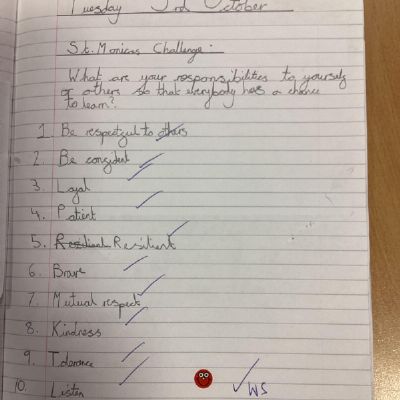 Tuesday 3rd October
St. Monicas Challenge:
What are your responsibilities to yourself
or others so that everybody has a chance
to learn?
1. Be respectful to others
2. Be confident
3. Loyal
4. Patient
5. Resilient
6. Brave
7. Mutual respect
8. Kindness
9. Tolerance
10. Listen
WS